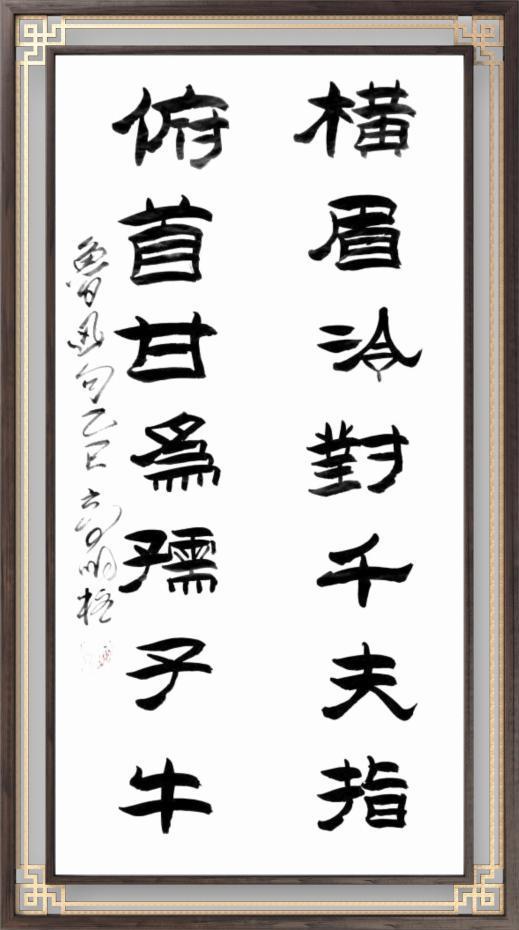 橫眉冷對千夫指
俯首甘為孺子牛
魯迅句乙巳
明柱